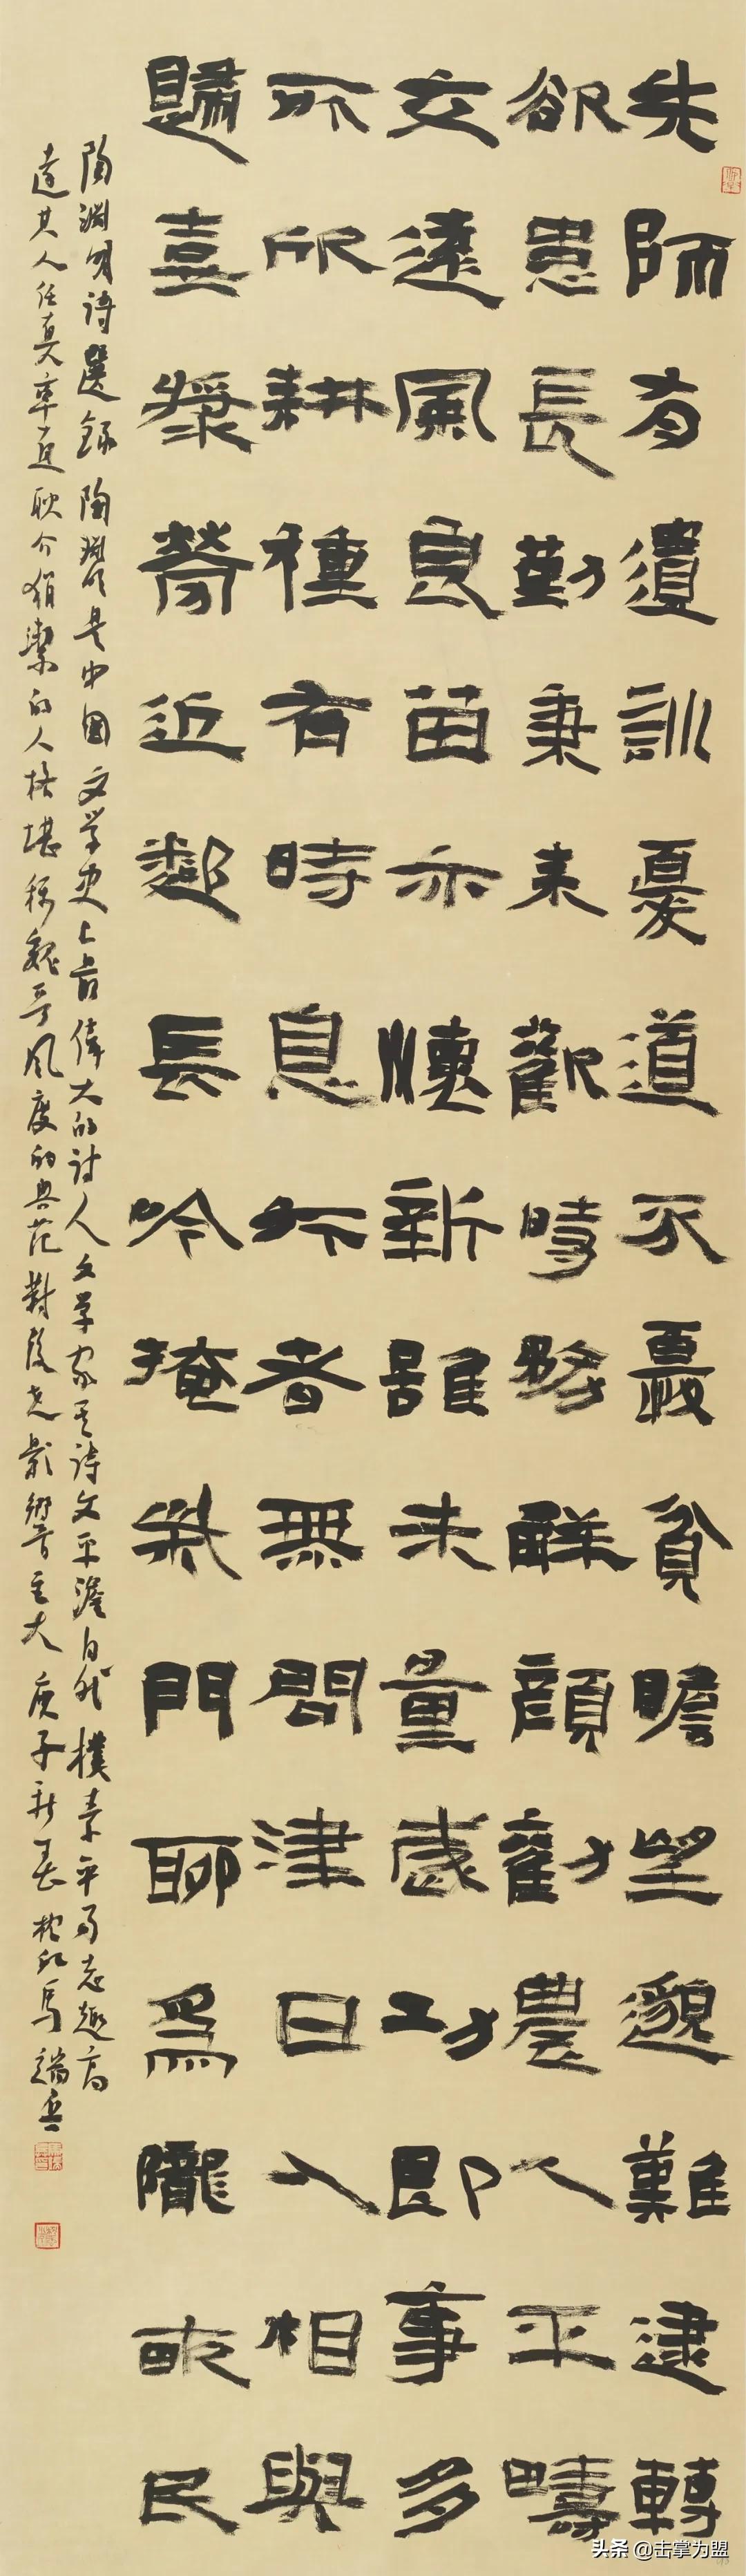 先師有遺訓憂道不憂貧瞻望邈難逮轉
欲患長勤秉耒歡時務解顏勸農人平疇
交遠風良苗亦懷新雖未量歲功即事多
所欣耕種有時息行者無問津日入相與
歸喜漿勞近鄰長吟掩柴門聊為隴畝民
陶淵明詩選錄 陶淵明是中國文學史上最偉大的詩人文學家其詩文平澹自然樸素平易志趣高
遠其人任真率直耿介狷潔的人格堪稱魏晉風度的典范對後世影響至大 庚子新春 馬端兵
头条 @击掌为盟